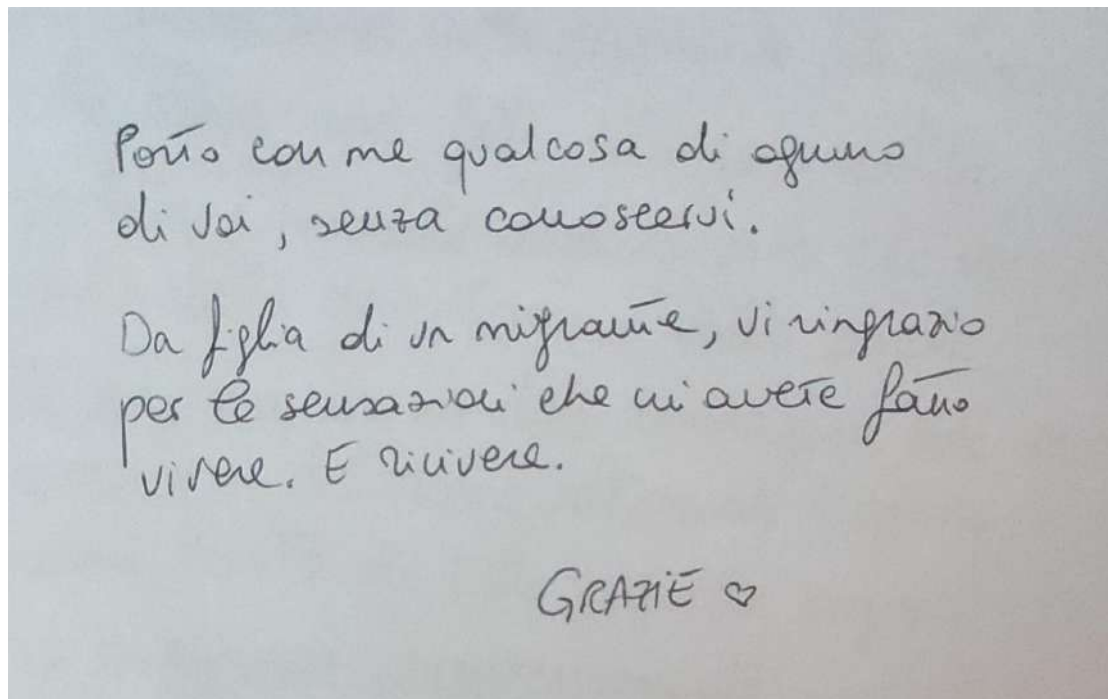 Porto con me qualcosa di ognuno
di voi, senza conoscervi.
Da figlia di un migrante, vi ringrazio
per le sensazioni che mi avete fatto
vivere. E rivivere.
GRAZIE ♡